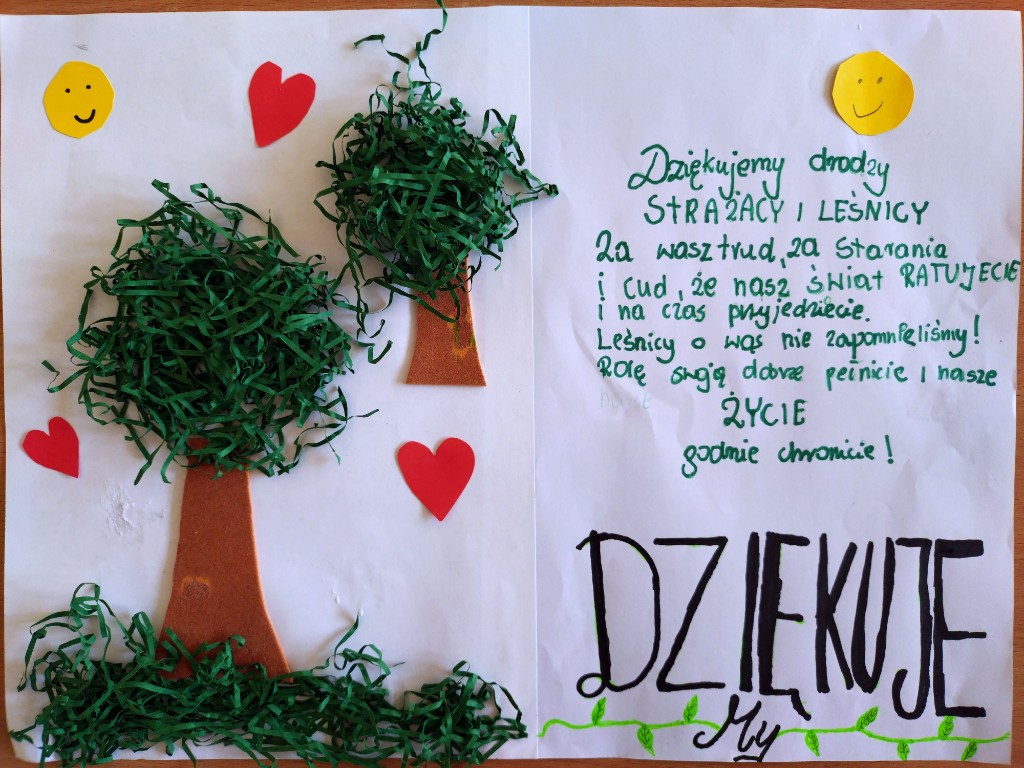 Dziękujemy drodzy
STRAŻACY I LEŚNICY
Za wasz trud, za starania
i cud, że nasz świat RATUJECIE
i na czas przyjedziecie.
Leśnicy o was nie zapomnieliśmy!
Rolę swoją dobrze pełnicie i nasze
ŻYCIE
godnie chronicie!
DZIĘKUJE
My